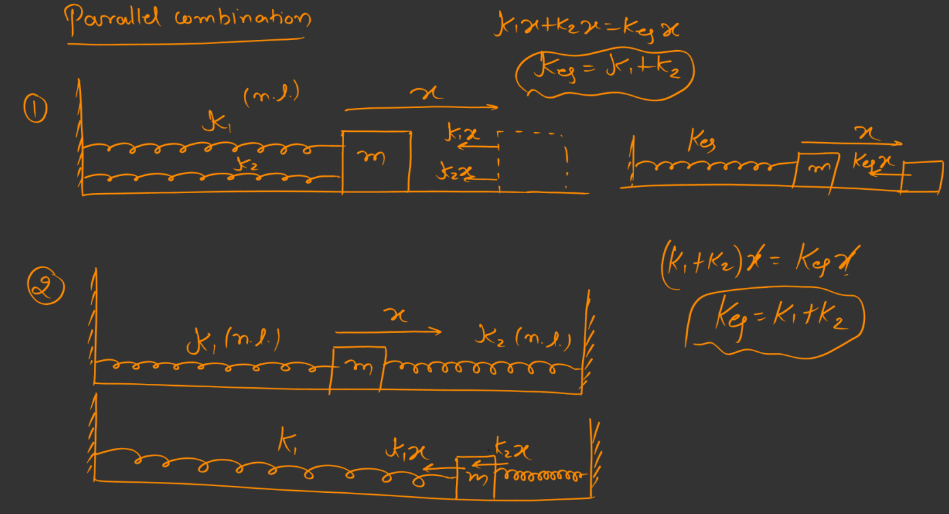 Parallel combination
K₁x+K₂x=Keqx
Keq=K₁+K₂
①
(n.l.)
K₁
K₂
m
x
K₁x
K₂x
Keq
m
x
Keqx
②
K₁(n.l.)
m
x
K₂(n.l.)
(K₁+K₂)x=Keqx
Keq=K₁+K₂
K₁
K₁x
K₂x
m